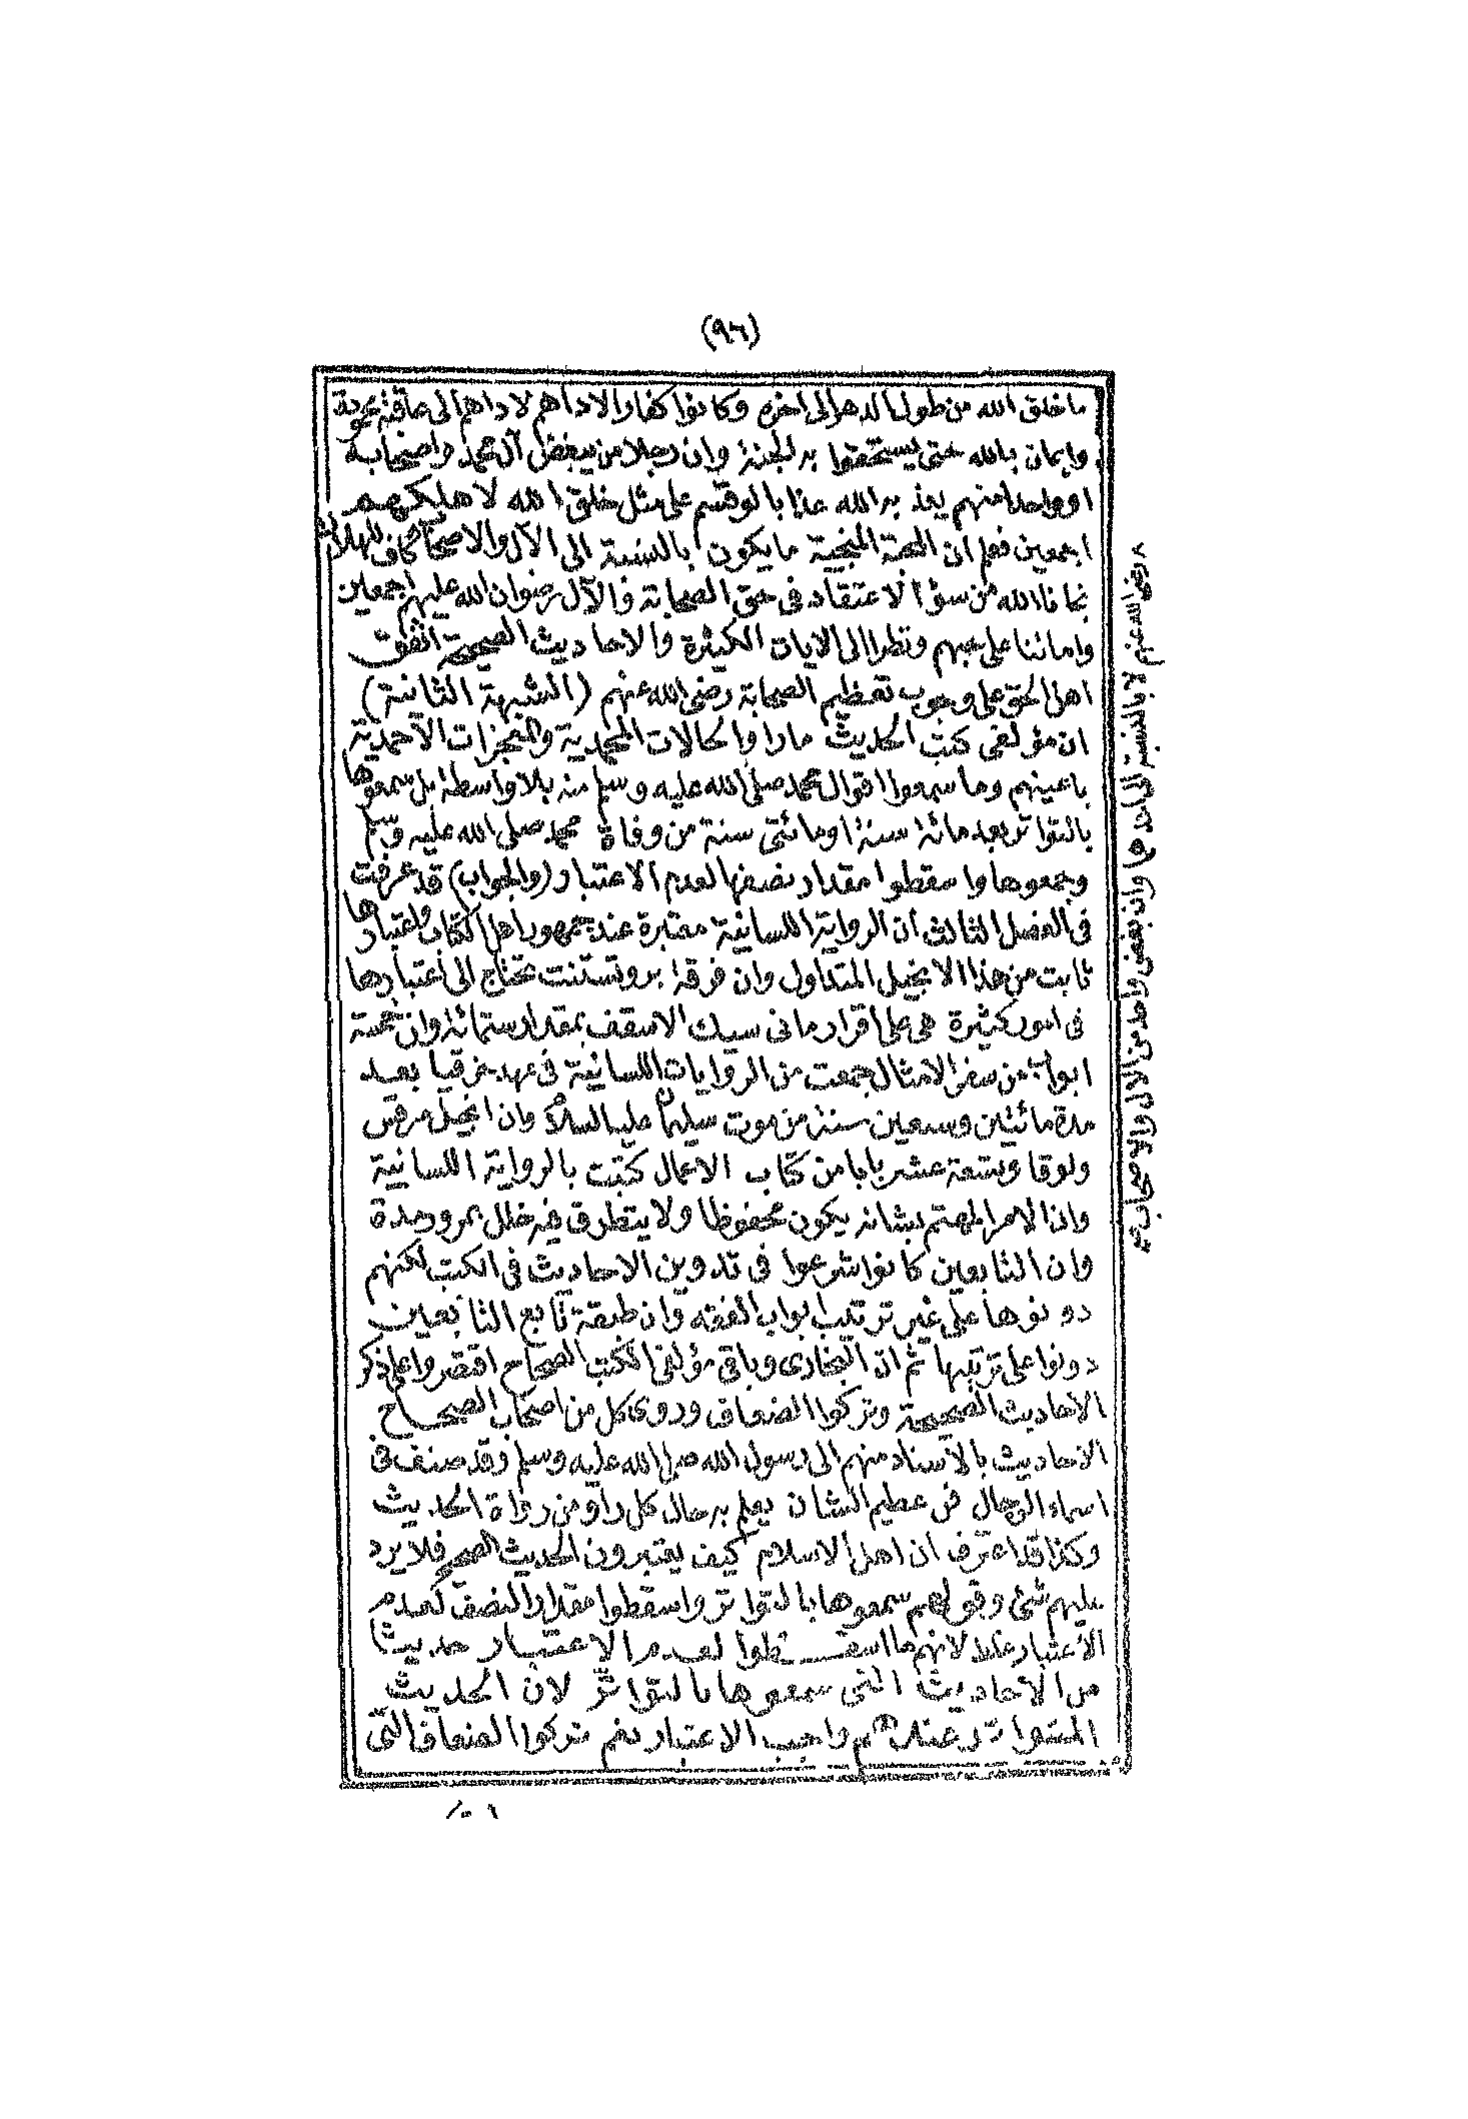 (٩٦)
ما خلق الله من طول الدهر الى اخره وكانوا كفارا لاداهم لاداهم الى عاقبة محمودة
وايمان بالله حتى يستحقوا به الجنة وان رجلا من يبغض آل محمد واصحابه
او واحدا منهم يعذبه الله عذابا لو قسم على مثل خلق الله لاهلكهم
اجمعين فعلم ان المحبة المنجية ما يكون بالنسبة الى الآل والاصحاب كاف للهلاك
نجانا الله من سوء الاعتقاد فى حق الصحابة والآل رضوان الله عليهم اجمعين
واماتنا على حبهم ونظرا الى الايات الكثيرة والاحاديث الصحيحة اتفق
اهل الحق على وجوب تعظيم الصحابة رضى الله عنهم (الشبهة الثانية)
ان مؤلفى كتب الحديث ما راوا الحالات المحمدية والمعجزات الاحمدية
باعينهم وما سمعوا اقوال محمد صلى الله عليه وسلم منه بلا واسطة بل سمعوها
بالتواتر بعد مائة سنة او مائتى سنة من وفاة محمد صلى الله عليه وسلم
وجمعوها واسقطوا مقدار نصفها لعدم الاعتبار (والجواب) قد عرفت
فى الفصل الثالث ان الرواية اللسانية معتبرة عند جمهور اهل الكتاب واعتبارها
ثابت من هذا الانجيل المتداول وان فرقة بروتستنت تحتاج الى اعتبارها
فى امور كثيرة هى على اقرار مانى سيك الاسقف بمقدار ستمائة وان خمسة
ابواب من سفر الامثال جمعت من الروايات اللسانية فى عهد حزقيا بعد
مدة مائتين وسبعين سنة من موت سليمان عليه السلام وان انجيل مرقس
ولوقا وتسعة عشر بابا من كتاب الاعمال كتبت بالرواية اللسانية
وان الامر المهتم بشانه يكون محفوظا ولا يتطرق فيه خلل بمرور مدة
وان التابعين كانوا شرعوا فى تدوين الاحاديث فى الكتب لكنهم
دونوها على غير ترتيب ابواب الفقه وان طبقة تابع التابعين
دونوا على ترتيبها ثم ان البخارى وباقى مؤلفى الكتب الصحاح اقتصروا على ذكر
الاحاديث الصحيحة وتركوا الضعاف وروى كل من اصحاب الصحاح
الاحاديث بالاسناد منهم الى رسول الله صلى الله عليه وسلم وقد صنف فى
اسماء الرجال فن عظيم الشان يعلم به حال كل راو من رواة الحديث
وكذا قد اعترف ان اهل الاسلام كيف يعتبرون الحديث الصحيح فلا يرد
عليهم شئ وقولهم سمعوها بالتواتر واسقطوا مقدار النصف لعدم
الاعتبار غلط لانهم ما اسقطوا لعدم الاعتبار حديثا
من الاحاديث التى سمعوها بالتواتر لان الحديث
المتواتر عندهم واجب الاعتبار نعم تركوا الضعاف التى